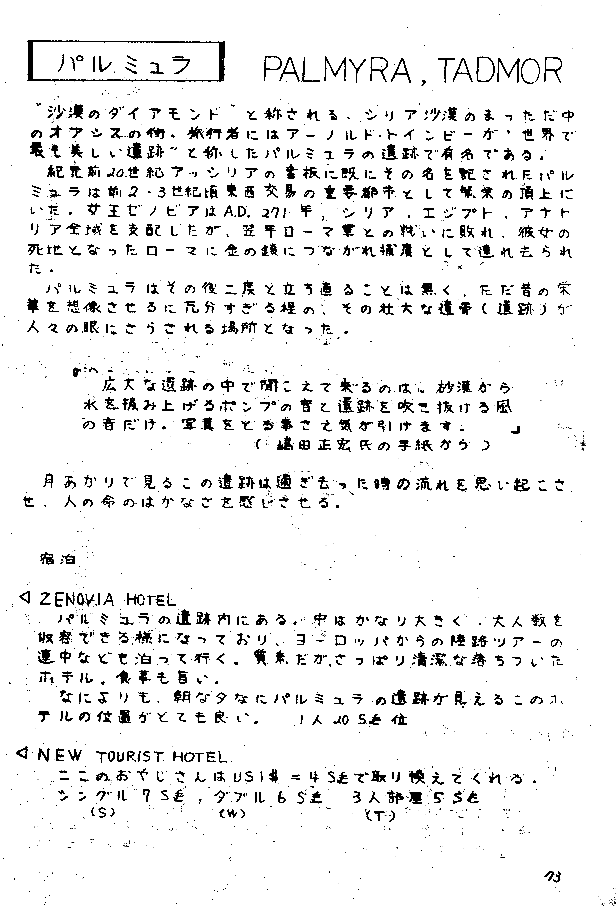 パルミュラ PALMYRA, TADMOR
"沙漠のダイアモンド"と称される、シリア沙漠のまっただ中
のオアシスの街。旅行者にはアーノルド・トインビーが"世界で
最も美しい遺跡"と称したパルミュラの遺跡で有名である。
紀元前20世紀アッシリアの書板に既にその名を記されたパル
ミュラは前2・3世紀頃東西交易の重要都市として繁栄の頂上に
いた。女王ゼノビアはA.D. 271年、シリア、エジプト、アナト
リア全域を支配したが、翌年ローマ軍との戦いに敗れ、彼女の
死地となったローマに金の鎖につながれ捕虜として連れ去られ
た。
パルミュラはその後二度と立ち直ることは無く、ただ昔の栄
華を想像させるに充分すぎる程の、その壮大な遺骨(遺跡)が
人々の眼にさらされる場所となった。
広大な遺跡の中で聞こえて来るのは、砂漠から
水を汲み上げるポンプの音と遺跡を吹き抜ける風
の音だけ。写真をとる事さえ気が引けます。」
(嶋田正宏氏の手紙から)
月あかりで見るこの遺跡は過ぎ去った時の流れを思い起こさ
せ、人の命のはかなさを感じさせる。
宿泊
◁ ZENOVIA HOTEL
パルミュラの遺跡内にある。中はかなり大きく、大人数を
収容できる様になっており、ヨーロッパからの陸路ツアーの
連中なども泊って行く。質素だが、さっぱり清潔な落ちついた
ホテル。食事も旨い。
なによりも、朝な夕なにパルミュラの遺跡が見えるこのホ
テルの位置がとても良い。 1人20S£位
◁ NEW TOURIST HOTEL
ここのおやじさんはUS1$=4S£で取り換えてくれる。
シングル7S£, ダブル6S£ 3人部屋5S£
(S) (W) (T)
73